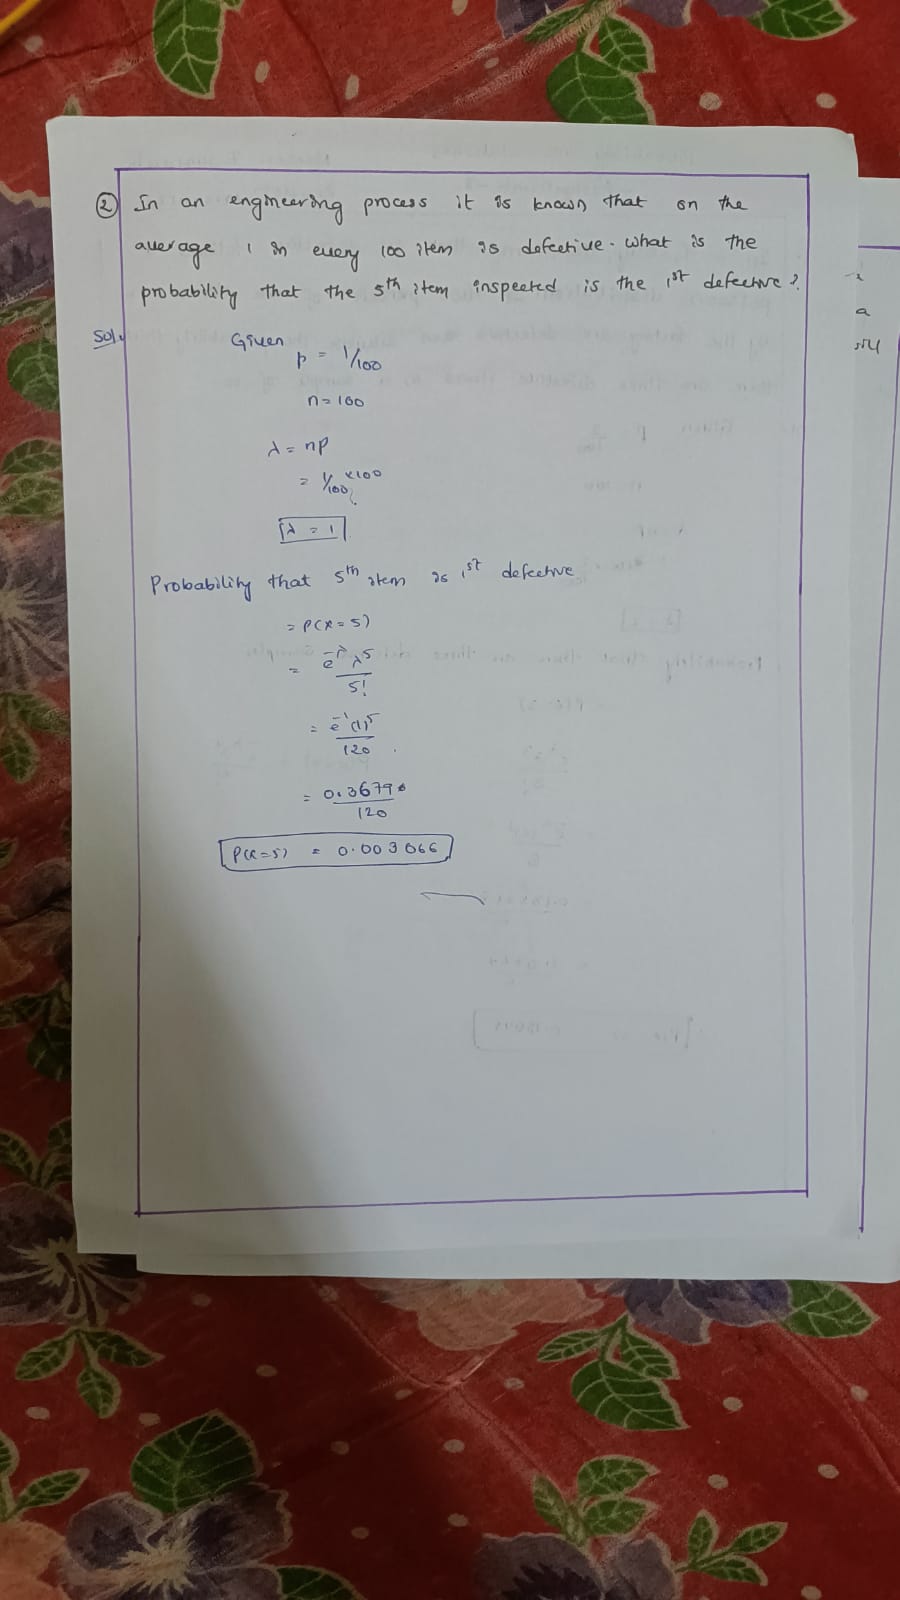 ② In an engineering process it is known that on the
average 1 in every 100 item is defective. What is the
probability that the 5th item inspected is the 1st defective?
Sol:
Given
p = 1/100
n = 100
λ = np
= 1/100 × 100
λ = 1
Probability that 5th item is 1st defective
= P(X = 5)
= e^-λ λ^5
5!
= e^-1 (1)^5
120
= 0.3679
120
P(X=5) = 0.003066
a